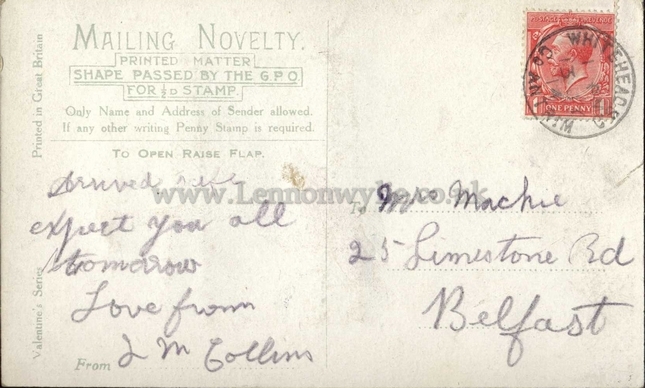 MAILING NOVELTY.
PRINTED MATTER
SHAPE PASSED BY THE G.P.O
FOR ½D STAMP.
Only Name and Address of Sender allowed.
If any other writing Penny Stamp is required.
TO OPEN RAISE FLAP.
Printed in Great Britain
Valentine's Series
www.Lennonwylie.co.uk
Arrived safe
expect you all
tomorrow
Love from
From J M Collins
POSTAGE REVENUE
ONE PENNY
WHITEHEAD
CO ANTRIM
To Mrs Mackie
25 Limestone Rd
Belfast